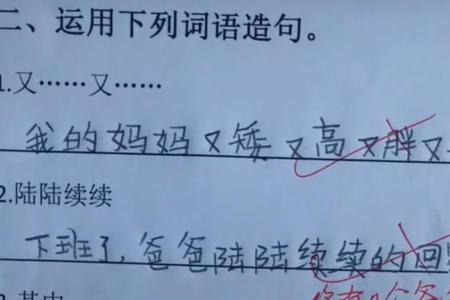 二、运用下列词语造句。
1.又……又……
我的妈妈又矮又高又胖又
2.陆陆续续
下班了,爸爸陆陆续续的回
3.其中